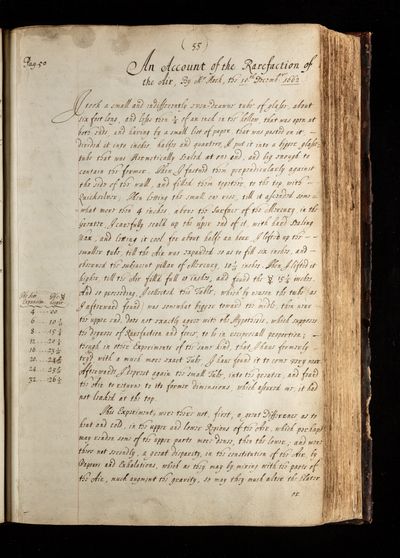 ( 55 )
Pag. 50
An Account of the Rarefaction of
the Air, By Mr Hook, the 10th Decembr 1662
I took a small and indifferently even-drawne tube of glasse, about
six foot long, and lesse then ¼ of an inch in the hollow, that was open at
both ends, and having by a small list of paper that was pasted on it
divided it into inches halfes and quarters, I put it into a bigger glasse
tube that was Hermetically sealed at one end, and big enough to
contain the former. Then I fastned them perpendicularly against
the side of the wall, and filled them together to the top with
Quicksilver. Then letting the small one rise, till it ascended some
what more then 4 inches above the Surface of the Mercury in the
greater, I carefully seald up the upper end of it with hard Sealing
Wax, and letting it cool for about halfe an hour I lifted up the
smaller tube, till the Air was expanded so as to fill six inches, and
observed the subjacent pillar of Mercury, 10 inches. Then I lifted it
higher, till the Air filld full 8 inches, and found the ☿ 15 inches.
And so proceeding I collected this Table, which by reason the tube as
I afterward found was somewhat bigger toward the midle, then near
the upper end, does not exactly agree with the Hypothesis, which supposes
the degrees of Rarefaction and force, to be in reciprocall proportion;
though in other Experiments of the same kind, that I have formerly
tryd with a much more exact Tube I have found it to come very near
Afterwards, I deprest again the small Tube, into the greater, and found
the Air to returne to its former dimensions, which assured me, it had
not leaked at the top.
Expansion
4 00
6 10
8 15
12 20
16 23
20 24
24 25
32 26
This Experiment, were there not, first, a great Difference as to
heat and cold, in the upper and lower Regions of the Air, which perhaps
may render some of the upper parts more dense, then the lower; and were
there not secondly, a great disparity, in the constitution of the Air, by
Vapours and Exhalations, which as they may by mixing with the parts of
the Air, much augment the gravity, so may they much alter the Elater
or